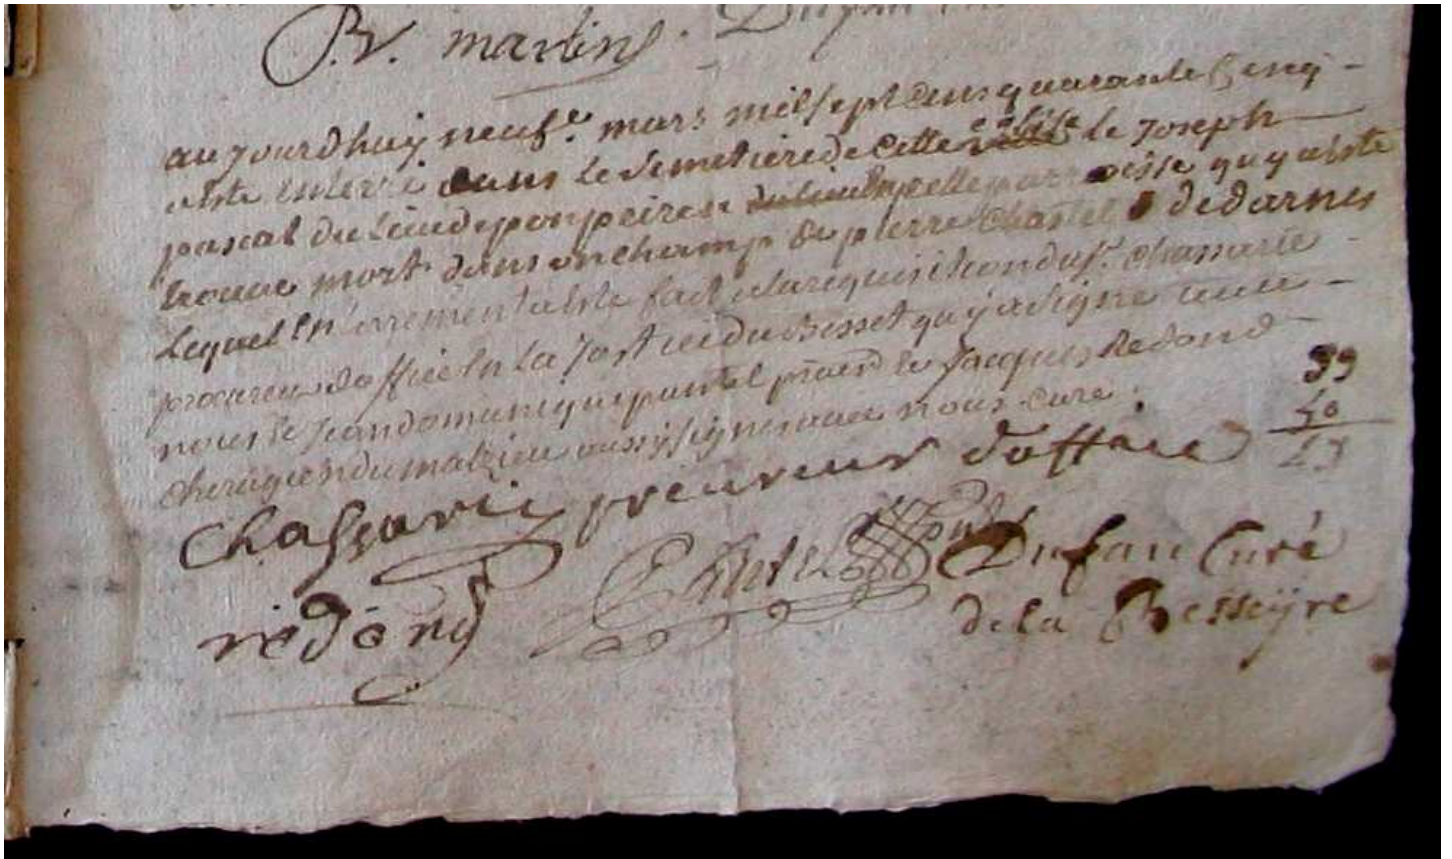 B.V. martin. Dufau
aujourdhuy neufe. mars mil sept cens quarante Cinq
a esté enterré dans le Semetiere de Cette eglise le Joseph
pascal du Lieu de ponpeiren parroisse quy a esté
trouvé mort dans un champ de pierre Chastel de darnes
Lequel Enterrement a esté fait a la requisition du sr. Chassarie
procureur doffice En la Justice du Besset quy a signé avec
nous le Jean domanique le Jacques Redond
du malzieu aussy signes avec nous curé.
Chassaric procureur doffice
redond Dufau Curé
de la Besseyre
39
40